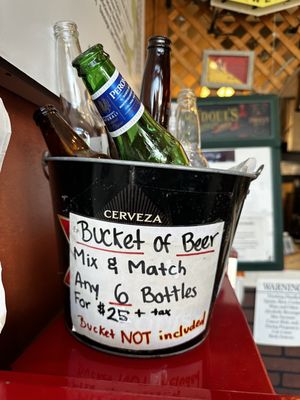 PERONI
CERVEZA
Bucket of Beer
Mix & Match
Any 6 Bottles
For $25 + tax
Bucket NOT included
O'DOUL'S
WARNING